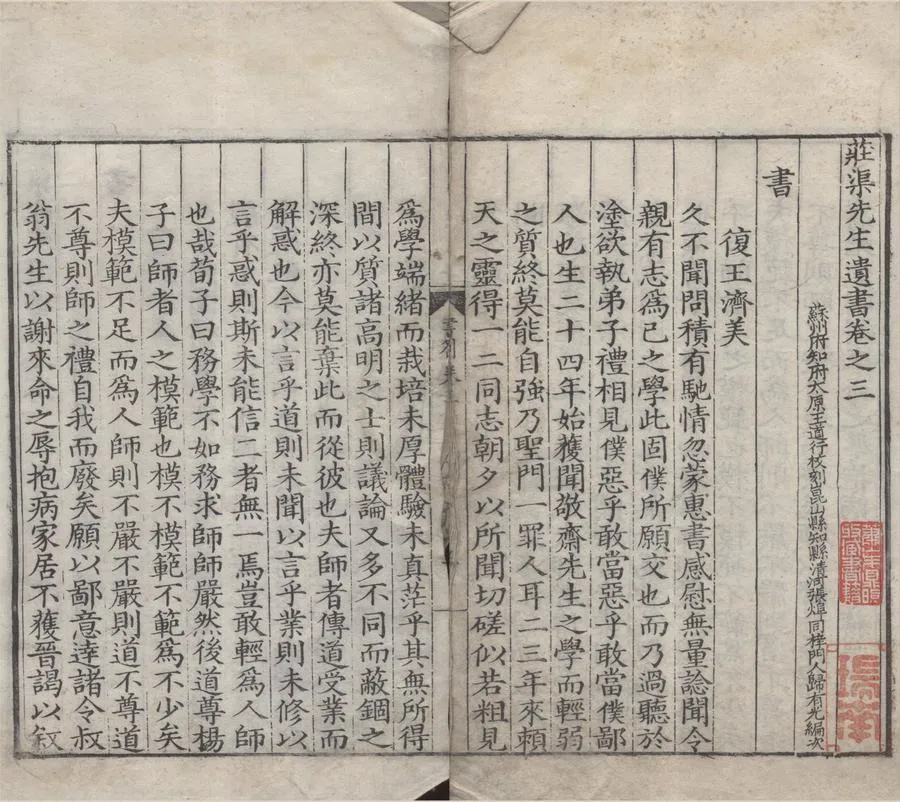 莊渠先生遺書卷之三
蘇州府知府太原王道行校刻崑山縣知縣清河張焯同校門人歸有光編次
書
復王濟美
久不聞問積有馳情忽蒙惠書感慰無量諗聞令
親有志爲已之學此固僕所願交也而乃過聽於
塗欲執弟子禮相見僕惡乎敢當惡乎敢當僕鄙
人也生二十四年始獲聞敬齋先生之學而輕弱
之質終莫能自強乃聖門一罪人耳二三年來頼
天之靈得一二同志朝夕以所聞切磋似若粗見
爲學端緒而栽培未厚體驗未真茫乎其無所得
間以質諸高明之士則議論又多不同而蔽錮之
深終亦莫能棄此而從彼也夫師者傳道受業而
解惑也今以言乎道則未聞以言乎業則未修以
言乎惑則斯未能信二者無一焉豈敢輕爲人師
也哉荀子曰務學不如務求師師嚴然後道尊楊
子曰師者人之模範也模不模範不範爲不少矣
夫模範不足而爲人師則不嚴不嚴則道不尊道
不尊則師之禮自我而廢矣願以鄙意逹諸令叔
翁先生以謝來命之辱抱病家居不獲晉謁以敘